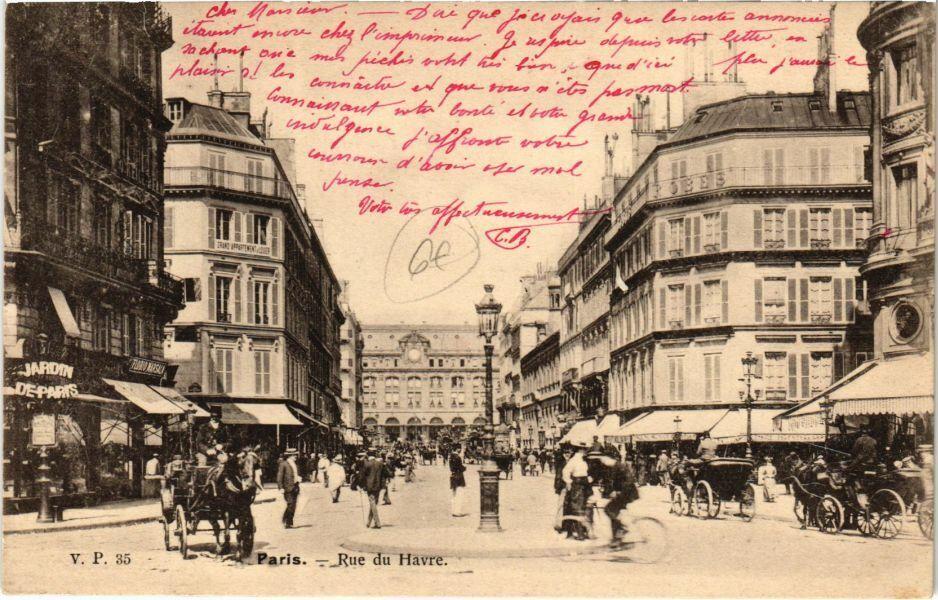 cher Monsieur — Dire que je croyais que les cartes annoncées
étaient encore chez l'imprimeur. Je respire depuis votre lettre, en
sachant que mes péchés vont très bien, que d'ici peu j'aurai le
plaisir de les connaître et que vous n'êtes pas mort.
Connaissant votre bonté et votre grande
indulgence j'affronte votre
courroux d'avoir oser mal
penser.
Votre très affectueusement
C.B.
6€
GRAND APPARTEMENT A LOUER
ROBES
JARDIN
DE PARIS
V. P. 35
Paris. — Rue du Havre.